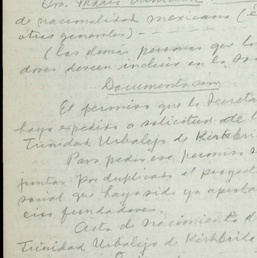 Sra. María
de nacionalidad mexicana (é
otros generales) - - -
(las demás personas que la
dores deseen incluir en la So
Documentación
El permiso que la Secreta
haya expedido a solicitud de
Trinidad Urbalejo de Kirkbri
Para pedir ese permiso
juntar por duplicado el proyec
sonal que haya sido ya aproba
cios fundadores.
Acta de nacimiento d
Trinidad Urbalejo de Kirkbride